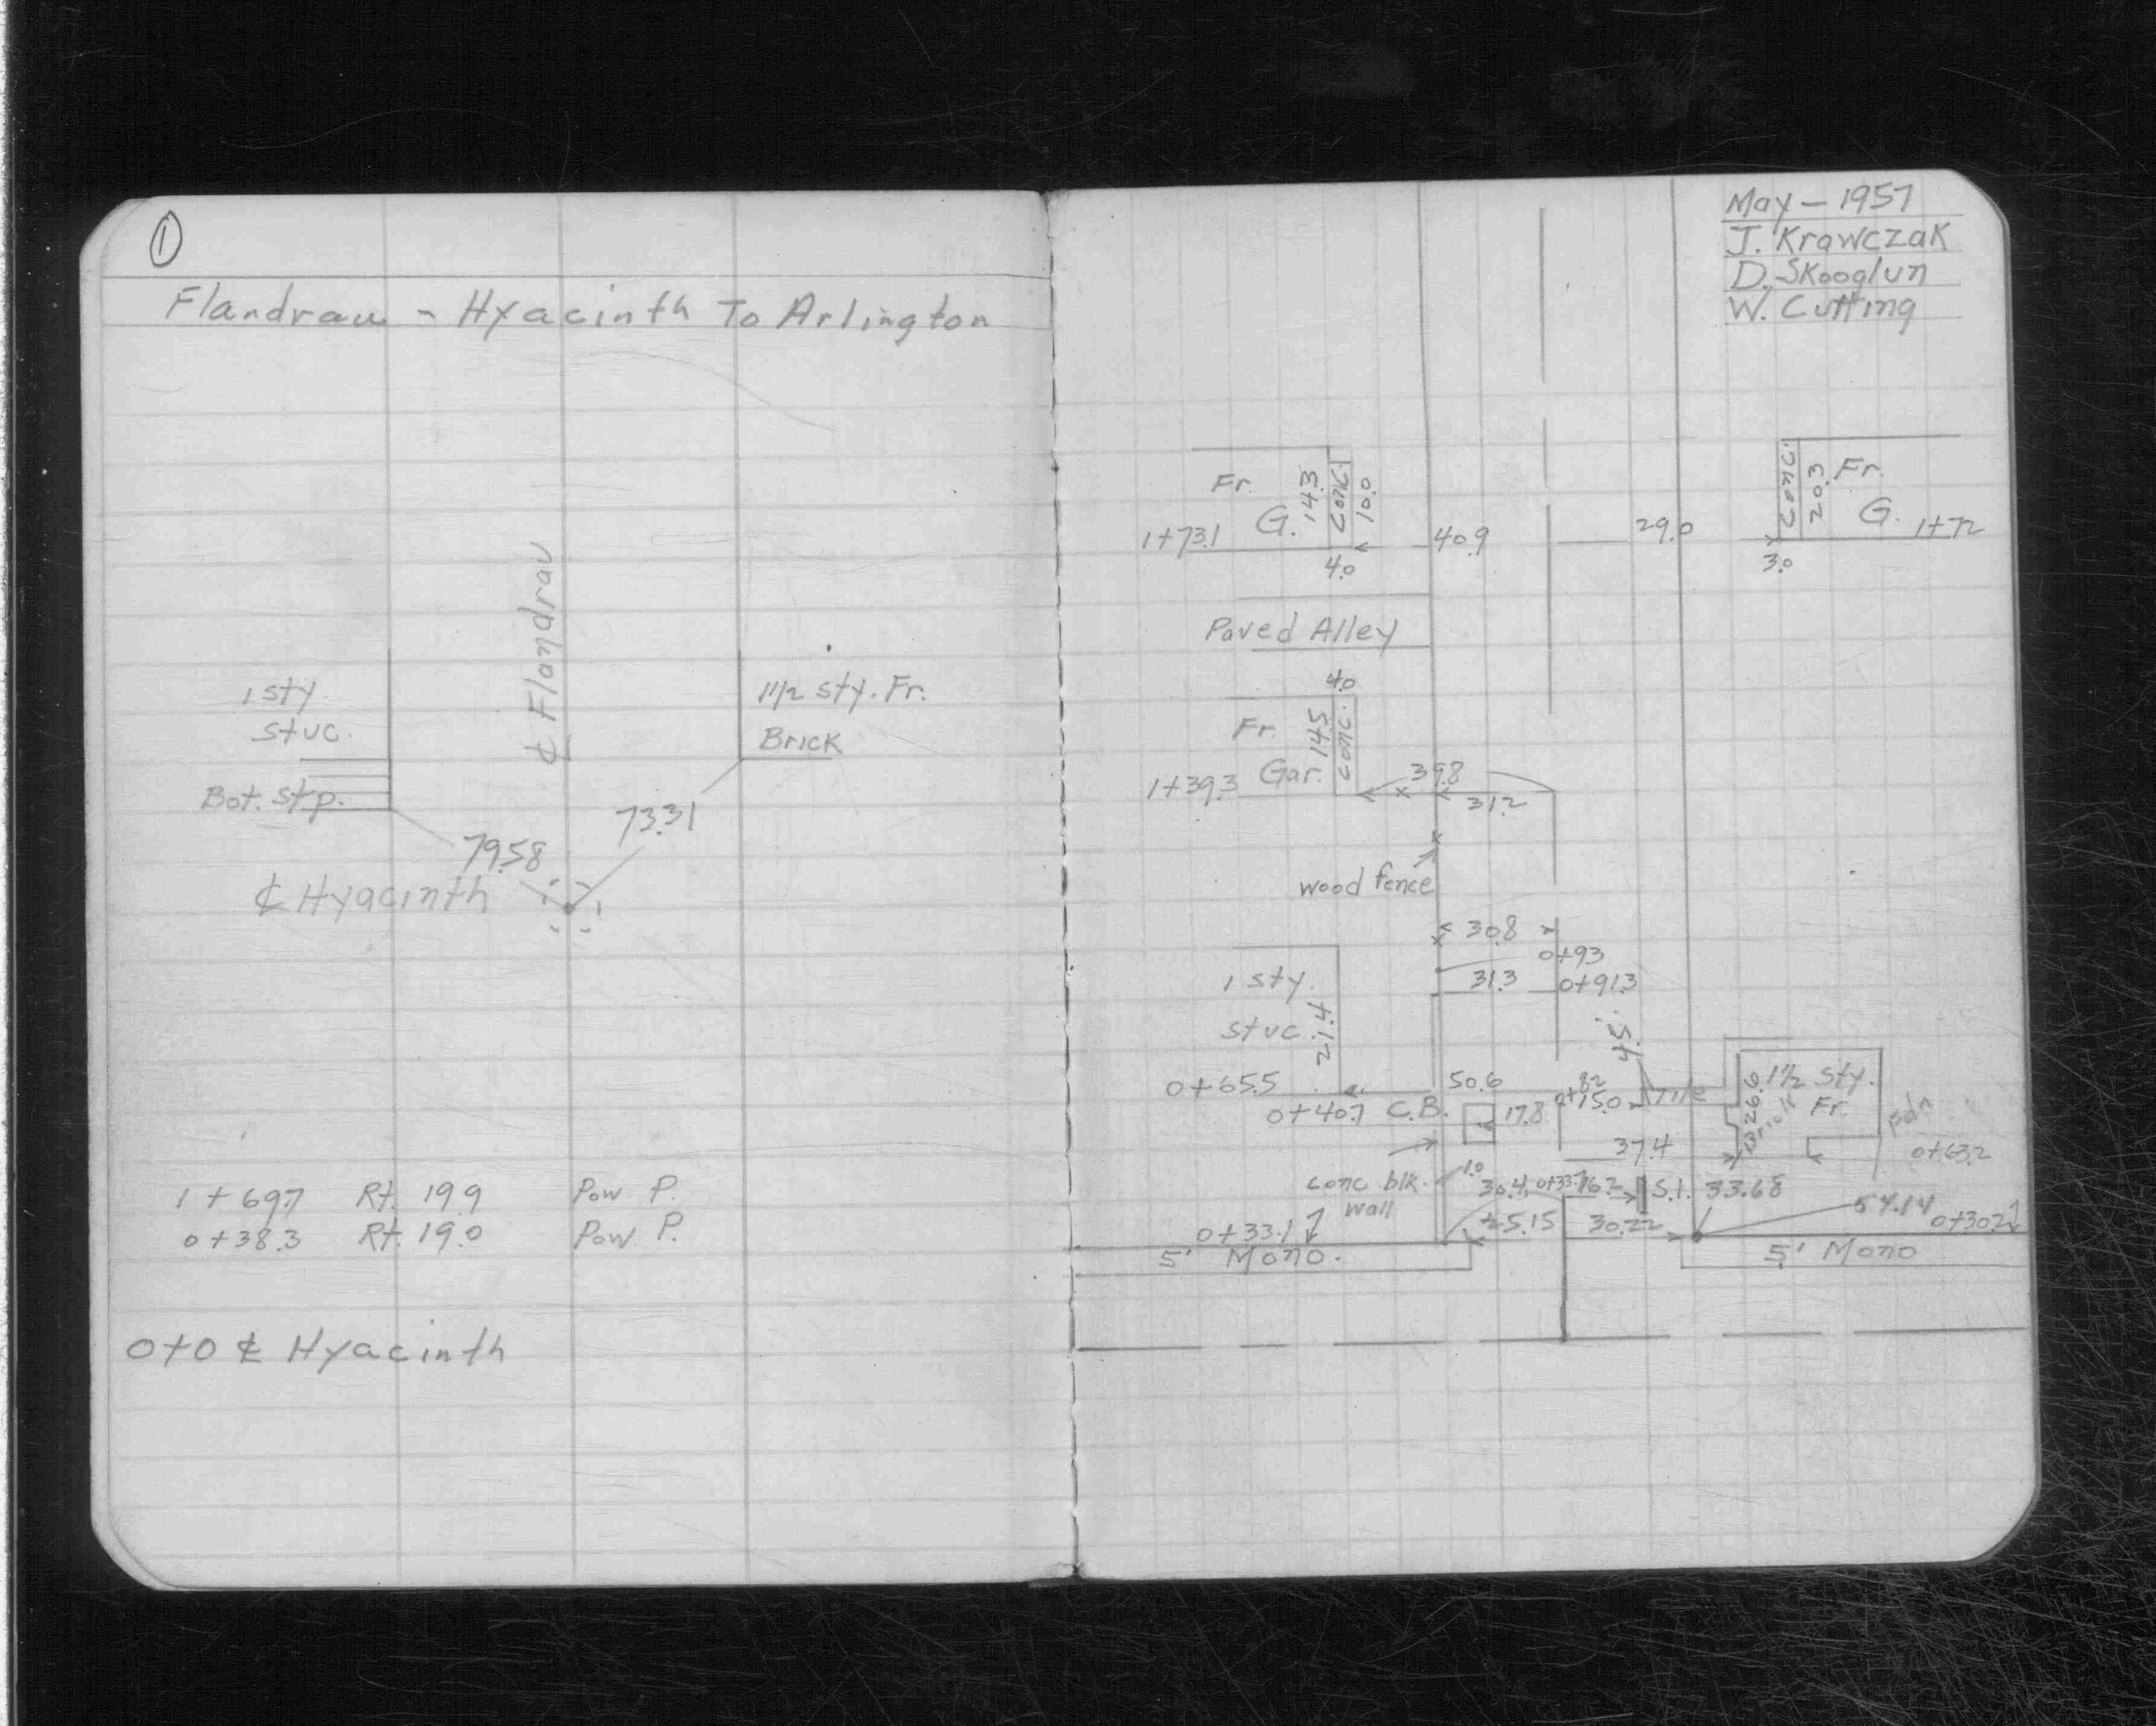 1
Flandrau - Hyacinth To Arlington
℄ Flandrau
1 sty
stuc.
Bot. stp.
1 1/2 sty. Fr.
Brick
79.58
73.31
℄ Hyacinth
1 + 69.7 Rt. 19.9 Pow. P.
0 + 38.3 Rt. 19.0 Pow. P.
0+0 ℄ Hyacinth
May - 1957
J. Krawczak
D. Skooglun
W. Cutting
Fr.
G.
14.3
Conc.
10.0
1+73.1
4.0
40.9
29.0
Conc.
20.3
Fr.
G.
1+72
3.0
Paved Alley
4.0
Fr.
Gar.
14.5
Conc.
1+39.3
39.8
31.2
wood fence
30.8
0+93
31.3
0+91.3
1 sty.
stuc.
21.4
0+65.5
50.6
4.5
0+82
15.0
Tile
0+40.7 C.B.
17.8
26.6
Brick
1 1/2 Sty.
Fr.
37.4
0+63.2
conc blk.
wall
1.0
30.4
0+33.7
16.2
S.I.
33.68
57.14
0+33.1
25.15
30.22
0+30.2
5' Mono.
5' Mono